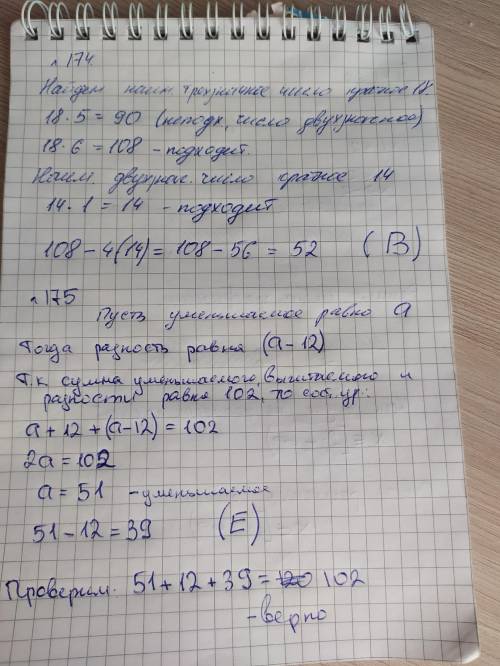 №174
Найдем наим. трехзначное число кратное 18.
18·5=90 (неподх, число двухзначное)
18·6=108 - подходит.
Наим. двухзнач. число кратное 14
14·1=14 - подходит
108-4(14)=108-56=52 (B)
№175
Пусть уменьшаемое равно a
Тогда разность равна (a-12)
Т.к сумма уменьшаемого, вычитаемого и
разности равна 102, то сост. ур:
a+12+(a-12)=102
2a=102
a=51 -уменьшаемое
51-12=39 (E)
Проверим: 51+12+39=102
-верно